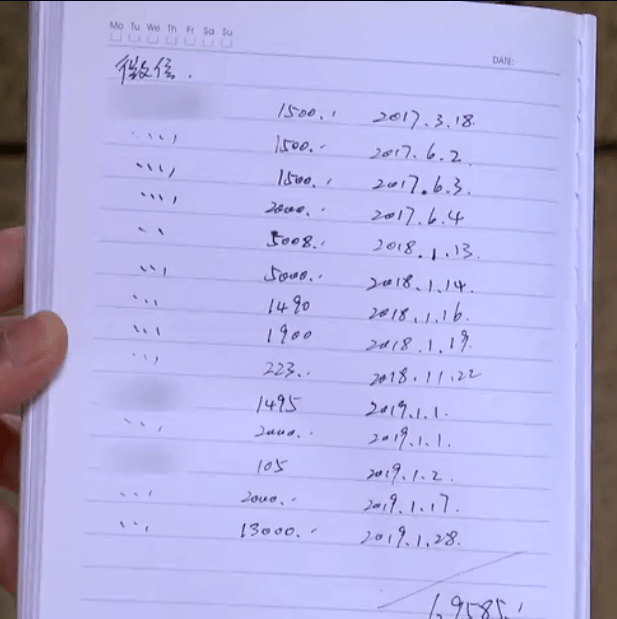 Mo Tu We Th Fr Sa Su
DATE:
微信.
1500.. 2017.3.18.
1500.. 2017.6.2.
1500.. 2017.6.3.
2000.. 2017.6.4
5008.. 2018.1.13.
5000.. 2018.1.14.
1490 2018.1.16.
1900 2018.1.19.
223.. 2018.11.22
1495 2019.1.1.
2000.. 2019.1.1.
105 2019.1.2.
2000.. 2019.1.17.
13000.. 2019.1.28.